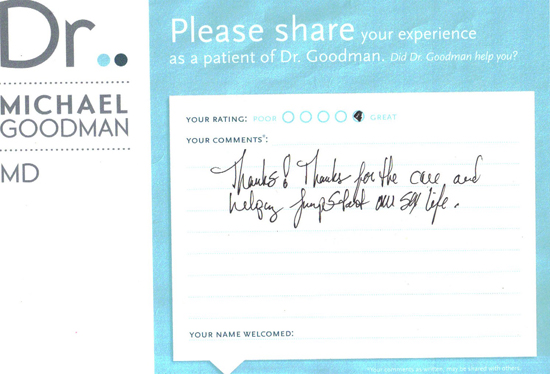 Dr..
MICHAEL
GOODMAN
MD
Please share your experience
as a patient of Dr. Goodman. Did Dr Goodman help you?
YOUR RATING: POOR GREAT
YOUR COMMENTS*:
Thanks! Thanks for the care and
helping jumpstart our sex life.
YOUR NAME WELCOMED:
*Your comments as written, may be shared with others.